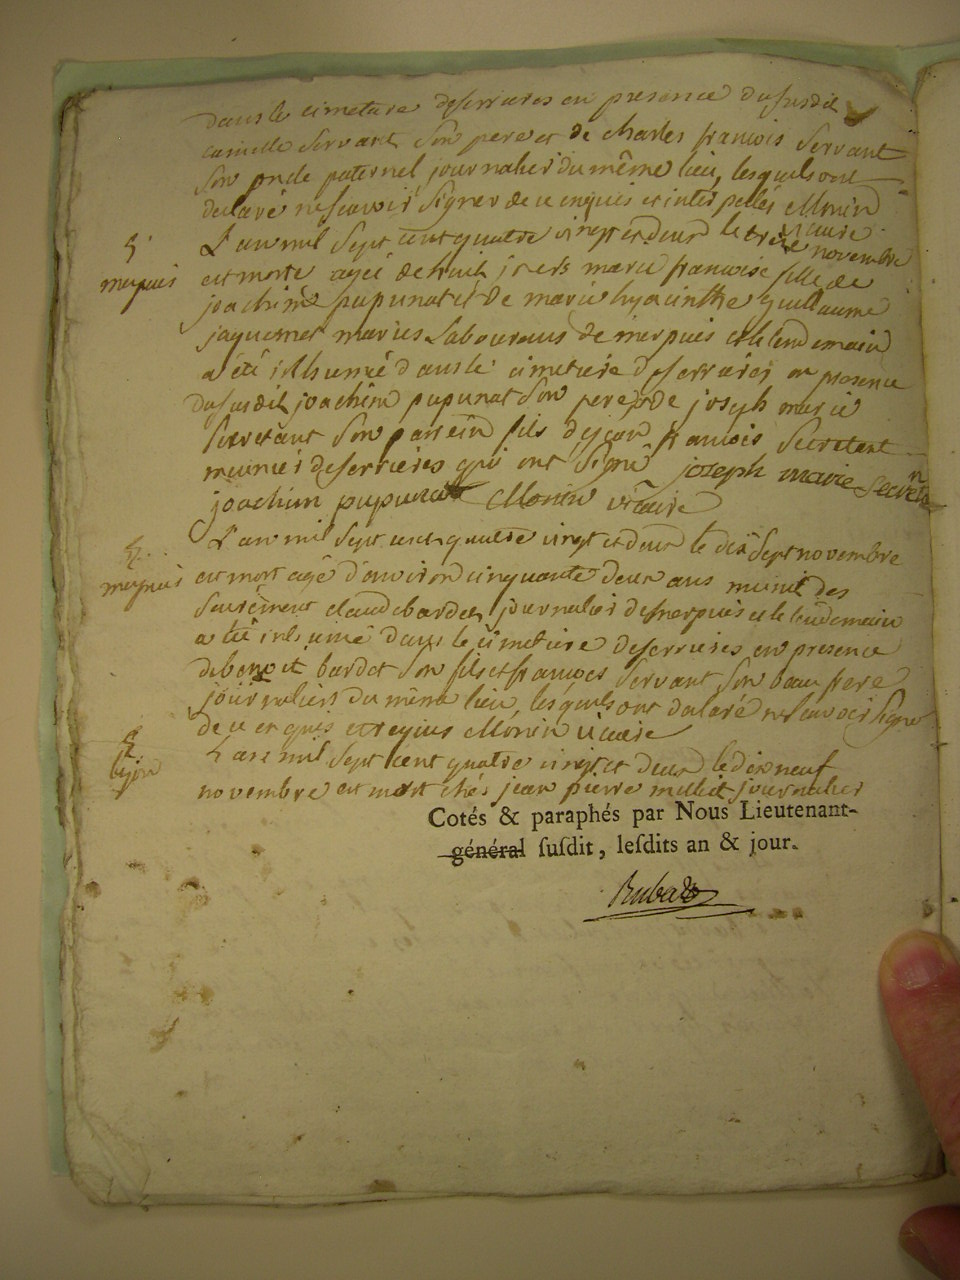 dans le cimetiere deserrieres en presence dususdit
camille Servant Son pere et de charles francois Servant
Son oncle paternel journalier du même lieu, lesquels ont
declaré ne Scavoir Signer de ce enquis et interpellés Monin
vicaire
S.
merpuis
L'an mil Sept cent quatre vingt et deux le treize novembre
est morte agée de huit jours marie francoise fille de
joachime pupunat et de marie hyacinthe guillaume
jaquemet mariés Laboureurs de merpuis et le lendemain
a été inhumée dans le cimetiere deserrieres en presence
dususdit joachim pupunat Son pere et de joseph marie
Secretant Son parrein fils dejean francois Secretant
meunier deserrieres qui ont Signé joseph marie Secretan
joachim pupunat Monin vicaire
S.
merpuis
L'an mil Sept cent quatre vingt et deux le dix Sept novembre
est mort agé d'environ cinquante deux ans munit des
Sacrement claude bardet journalier demerpuis et le lendemain
a été inhumé dans le cimetiere deserrieres en presence
debenoit bardet Son fils et francois Servant Son beau frere
journaliers du même lieu, lesquels ont declaré ne Scavoir Signer
de ce enquis et requis Monin vicaire
S.
L'an mil Sept cent quatre vingt et deux le dix neuf
novembre est mort chés jean pierre milliet journalier
Cotés & paraphés par Nous Lieutenant-
général ſuſdit, leſdits an & jour.